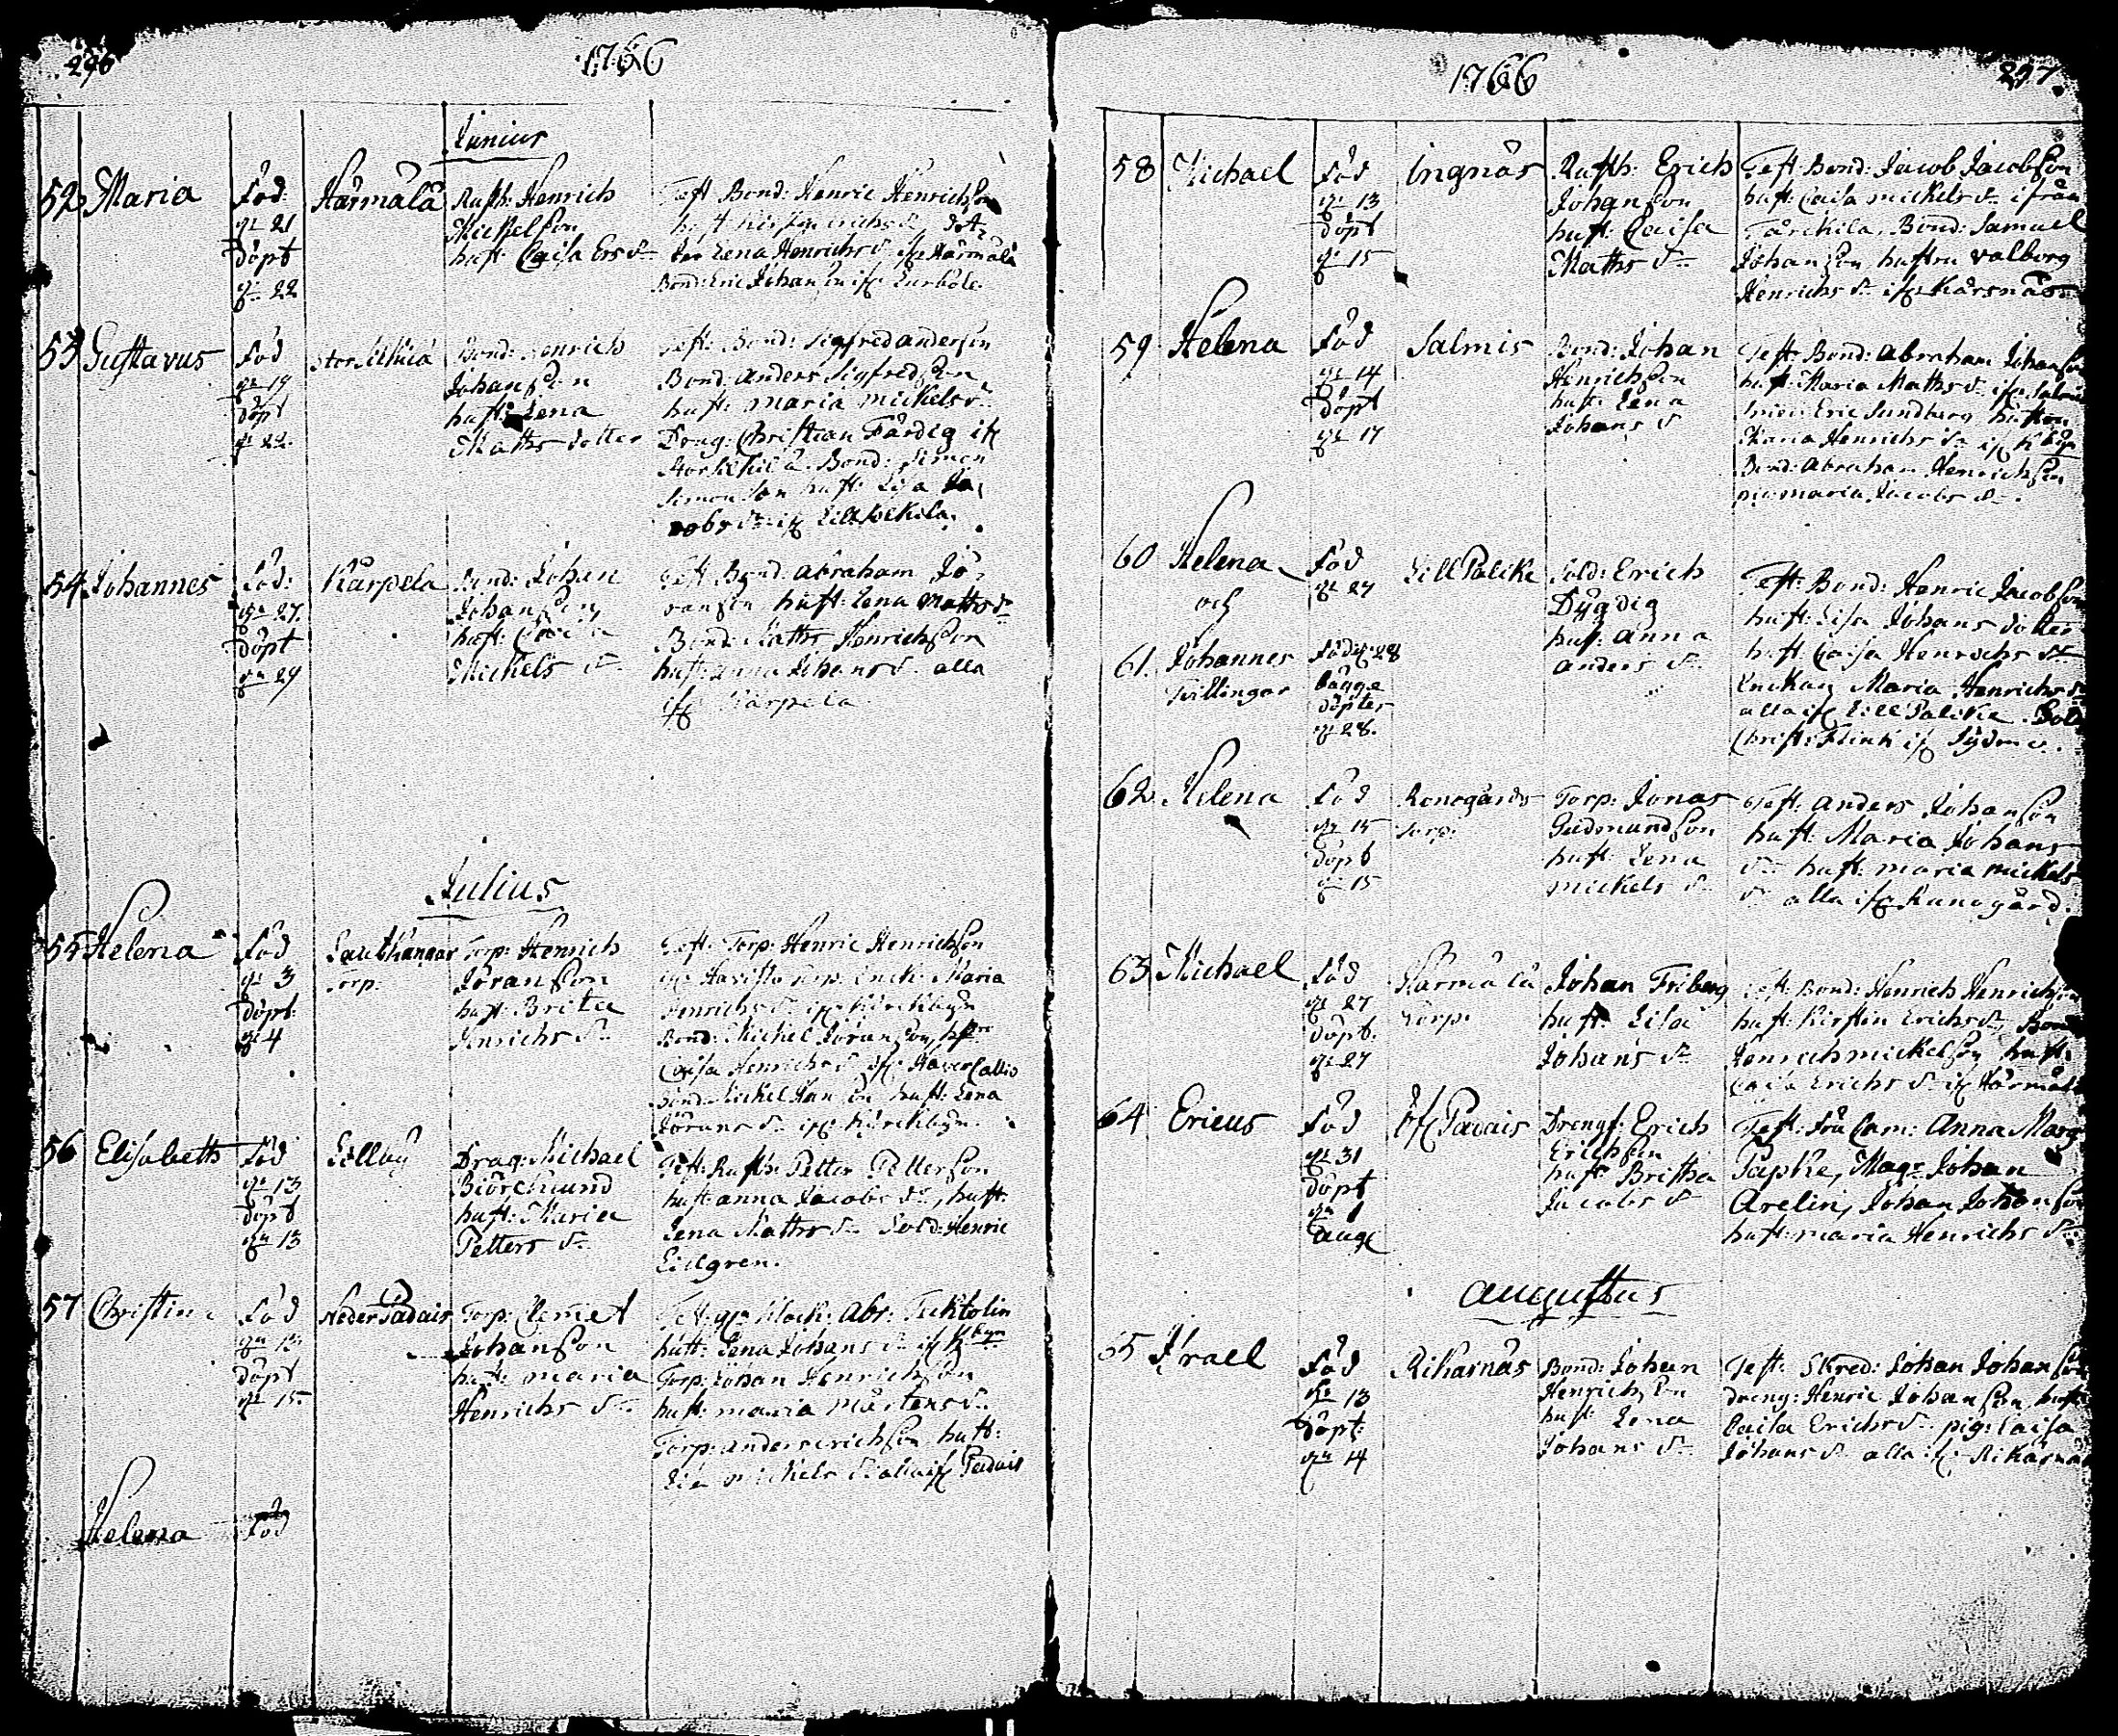 296
1766
Junius
52 Maria
Född:
d: 21
döpt
d: 22
Härmälä
Rusth: Henrich
Mickelson
hust: Caisa Ers dr
Test Bond: Henric Henrichson
hust: Kirstin Erichs dr dot-
ter Lena Henrichs dr if: Härmälä
Bond: Eric Johanson if:
53 Gustavus
Född
d: 19
döpt
d: 22.
Bond: Henrich
Johanson
hust: Lena
Maths dotter
Test: Bond: Sigfred anderson
Bond: Anders Sigfredson
hust: maria mickels dr
Drag: Christian Färdig if
Bond: Simon
Simonson hust: Lisa Ja-
cobs dr if
54 Johannes
Född:
d: 27.
döpt
d: 29
Kärpela
Bond: Johan
Johanson
hust: Caisa
Mickels dr
Test Bond: Abraham Jö-
ranson hust: Lena Maths dr
Bond: Maths Henrichson
hust: Anna Johans dr alla
if Kärpela
Julius
55 Helena
Född
d: 3
döpt:
d: 4
Torp:
Torp: Henrich
Jöranson
hust: Brita
Henrichs dr
Test: Torp: Henric Henrichson
Torp: Enck: Maria
Henrichs dr if: Kÿrckbyn
Bond: Michel Jöranson,
Caisa Henrichs dr if:
hust: Lena
Jörans dr if: Kÿrckbyn.
56 Elisabeth
Född
d: 13
döpt
d: 13
Lillbÿ
Drag: Michael
Biörcklund
hust: Maria
Petters dr
Test: Rusth: Petter Petterson
hust: anna Jacobs dr, hust:
Lena Maths dr Sold: Henric
57 Christina
Född
d: 13
döpt
d: 15.
Neder Padais
Torp: Clemet
Johanson
hust: maria
Henrichs dr
Klock: Abr: Tecktolin
hust: Lena Johans dr if Kbyn
Torp: Johan Henrichson
hust: maria Mårtens dr
Torp: anders erichson hust:
Lisa Mickels dr alla if Padais
Helena
Född
1766
297.
58 Michael
Född
d: 13
döpt
d: 15
Ingnäs
Rusth: Erich
Johanson
hust: Caisa
Maths dr
Test: Bond: Jacob Jacobson
hust: Caisa mickels dr ifrån
Bond: Samuel
Johanson hustru Valborg
Henrichs dr if: Kårsnäs
59 Helena
Född
d: 14
döpt
d: 17
Salmis
Bond: Johan
Henrichson
hust: Lena
Johans dr
Test: Bond: Abraham Johanson
hust: Maria Maths dr if: Salmis
Smed: Eric Sundberg hustru
Maria Henrichs dr if Kbyn
Bond: Abraham Henrichson
pig: maria Jacobs dr
60 Helena
och
Född
d: 27
Lill Palike
Sold: Erich
Dÿgdig
hust: Anna
Anders dr
Test: Bond: Henric Jacobson
hust: Lisa Johans dotter
hust: Caisa Henrichs dr
Enckan Maria Henrichs dr
alla if Lill Palike Sold
Christ: Flink if
61. Johannes
Tvillingar
Född d: 28
bägge
döpter
d: 28.
62 Helena
Född
d: 15
döpt
d: 15
Konogårds
Torp:
Torp: Jonas
Gudmundson
hust: Lena
Mickels dr
Test: Anders Johanson
hust: Maria Johans
dr hust: maria mickels
dr alla if Kunogård.
63 Michael
Född
d: 27
döpt.
d: 27
Harmala
Torp:
Johan Friberg
hust: Lisa
Johans dr
Test: Bond: Henrich Henrichson
hust: Kirstin Erichs dr, Bond
Henrich mickelson hust:
Caisa Erichs dr if Härmälä
64 Ericus
Född
d: 31
döpt
d: 1
aug
Öf: Padais
Drengs: Erich
Erichson
hust: Britha
Jacobs dr
Test: Fru Cam: Anna Marg
Papke, Magr Johan
Arelin, Johan Johanson
hust: maria Henrichs dr
Augustus
65 Israel
Född
d: 13
döpt:
d: 14
Rikarnäs
Bond: Johan
Henrichson
hust: Lena
Johans dr
Test: Skred: Johan Johanson
dreng: Henric Johanson, hust
Caisa Erichs dr pig: Caisa
Johans dr alla if: Rikarnäs